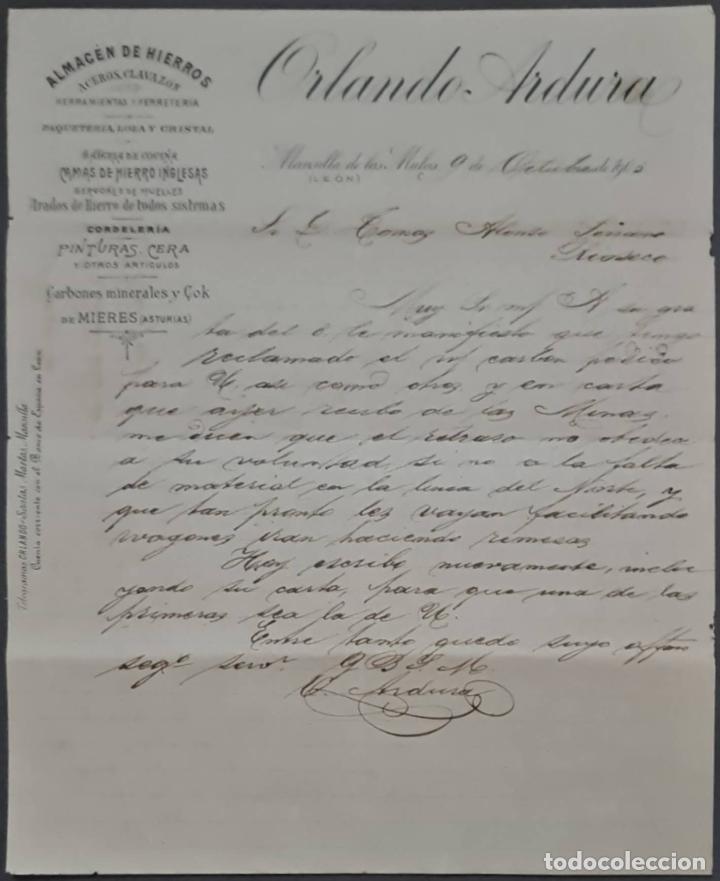 ALMACÉN DE HIERROS
ACEROS, CLAVAZON
HERRAMIENTAS Y FERRETERIA
PAQUETERIA, LOZA Y CRISTAL
BATERIA DE COCINA
CAMAS DE HIERRO INGLESAS
SERVORES DE MUELLES
Arados de Hierro de todos sistemas
CORDELERÍA
PINTURAS, CERA
Y OTROS ARTICULOS
Carbones minerales y Cok
DE MIERES (ASTURIAS)
Telegramas ORLANDO-Santas Martas Mansilla
Cuenta corriente con el Banco de España en León
Orlando Ardura
Mansilla de las Mulas 9 de Octubre de
(LEÓN)
Sr D Tomas Alonso
Rioseco
Muy Sr mio A su gra
ta del 6 le manifiesto que tengo
reclamado el carbon pedido
para V. asi como otros y en carta
que ayer recibo de las Minas
me dicen que el retraso no obedece
a su voluntad, si no a la falta
de material en la linea del Norte, y
que tan pronto les vayan facilitando
wagones iran haciendo remesas
Hoy escribo nuevamente, inclu
yendo su carta, para que una de las
primeras sea la de V.
Entre tanto quedo suyo affmo
segº servr. Q B S M.
O. Ardura
todocoleccion